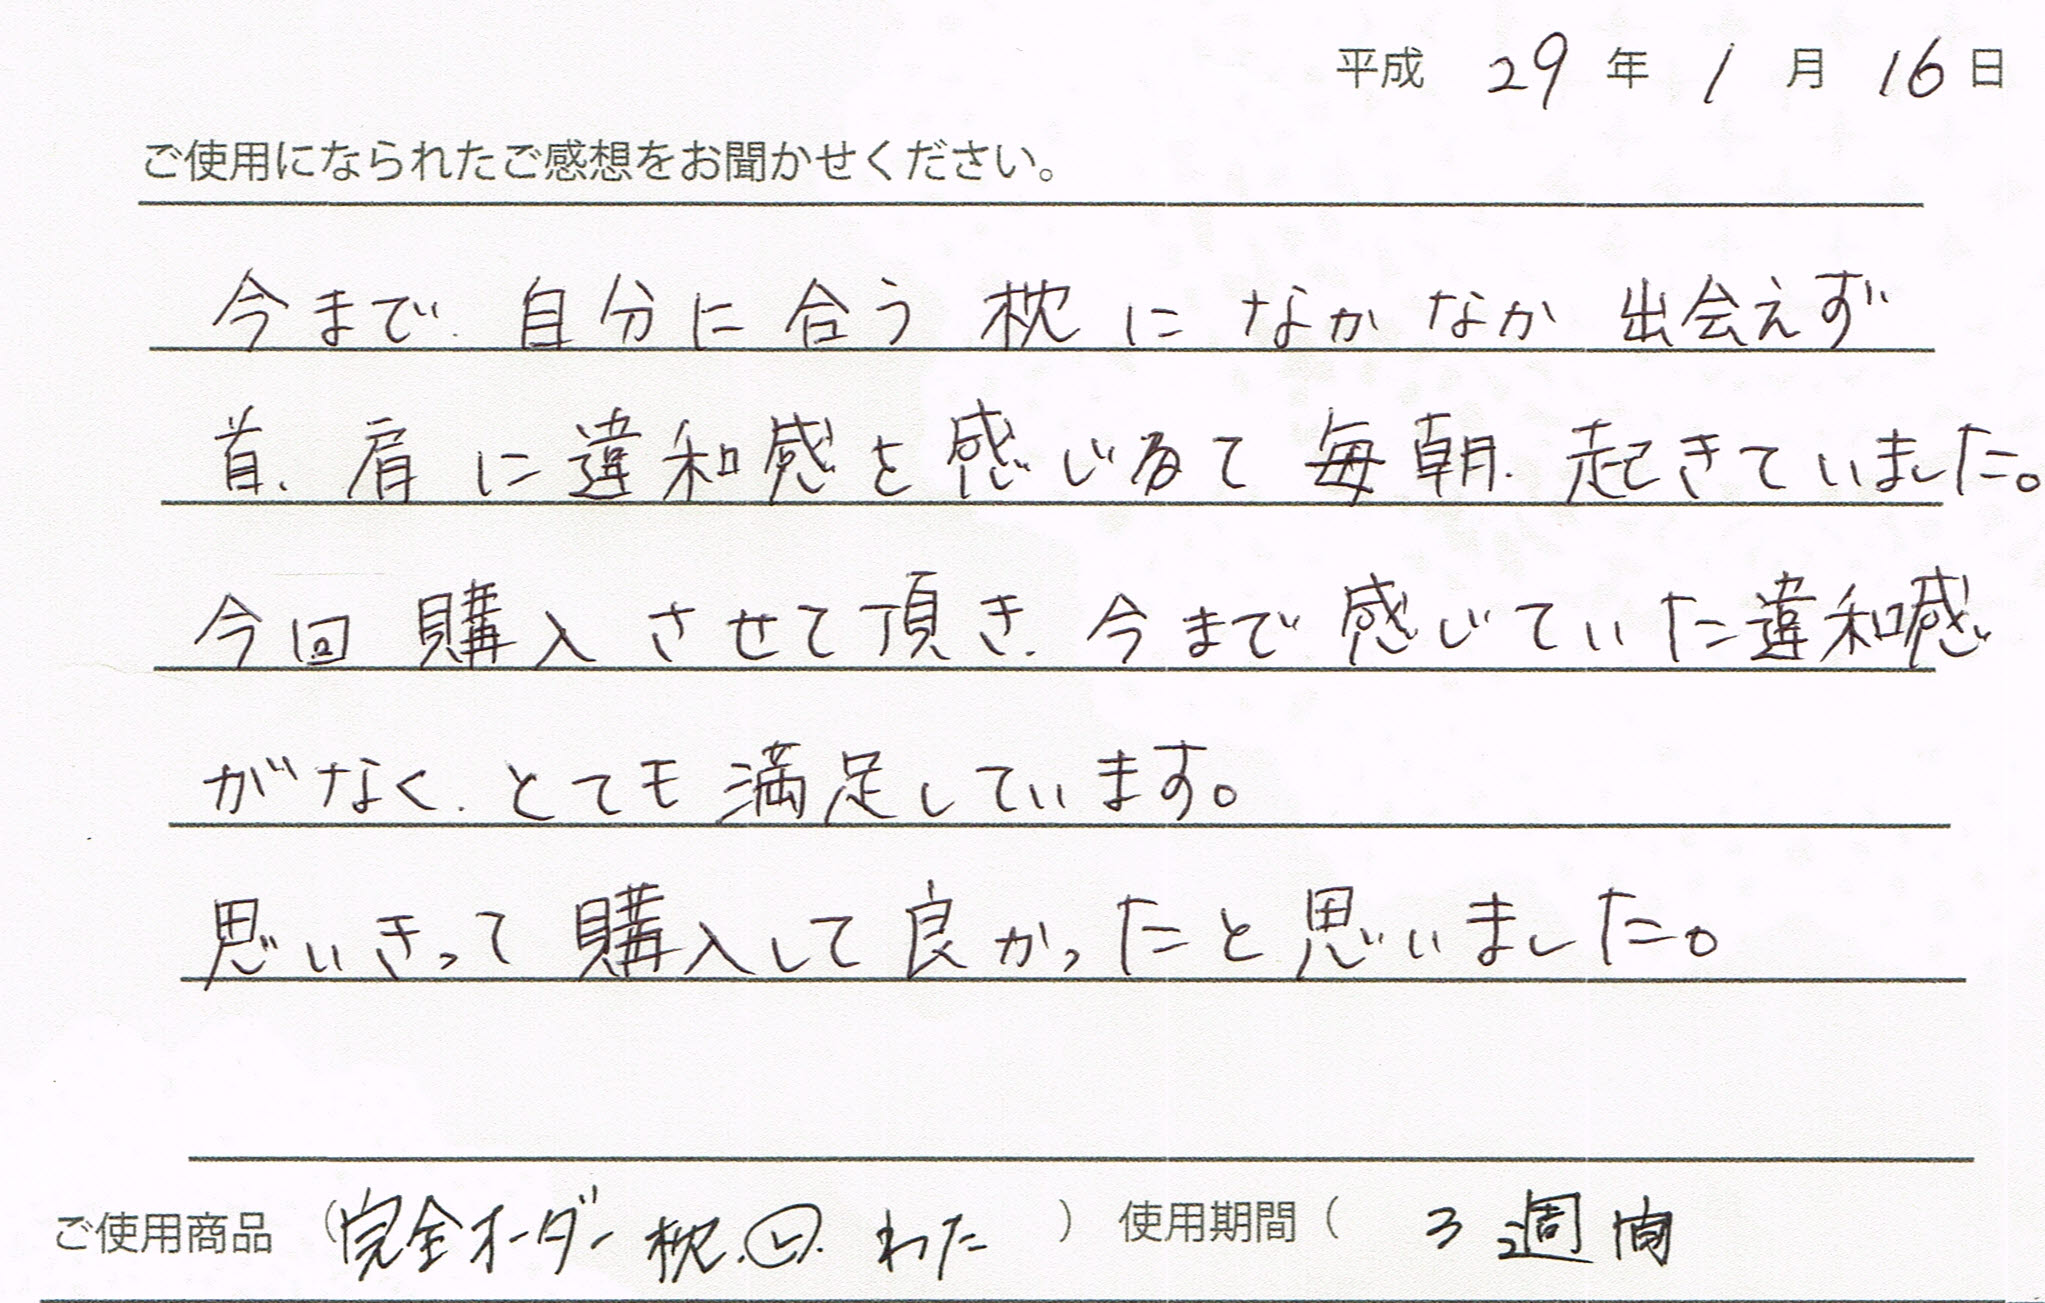 平成 29 年 1 月 16 日
ご使用になられたご感想をお聞かせください。
今まで、自分に合う枕になかなか出会えず
首、肩に違和感を感じるて毎朝、起きていました。
今回購入させて頂き、今まで感じていた違和感
がなく、とても満足しています。
思いきって購入して良かったと思いました。
ご使用商品 (完全オーダー枕. ㋣. わた) 使用期間( 3週間